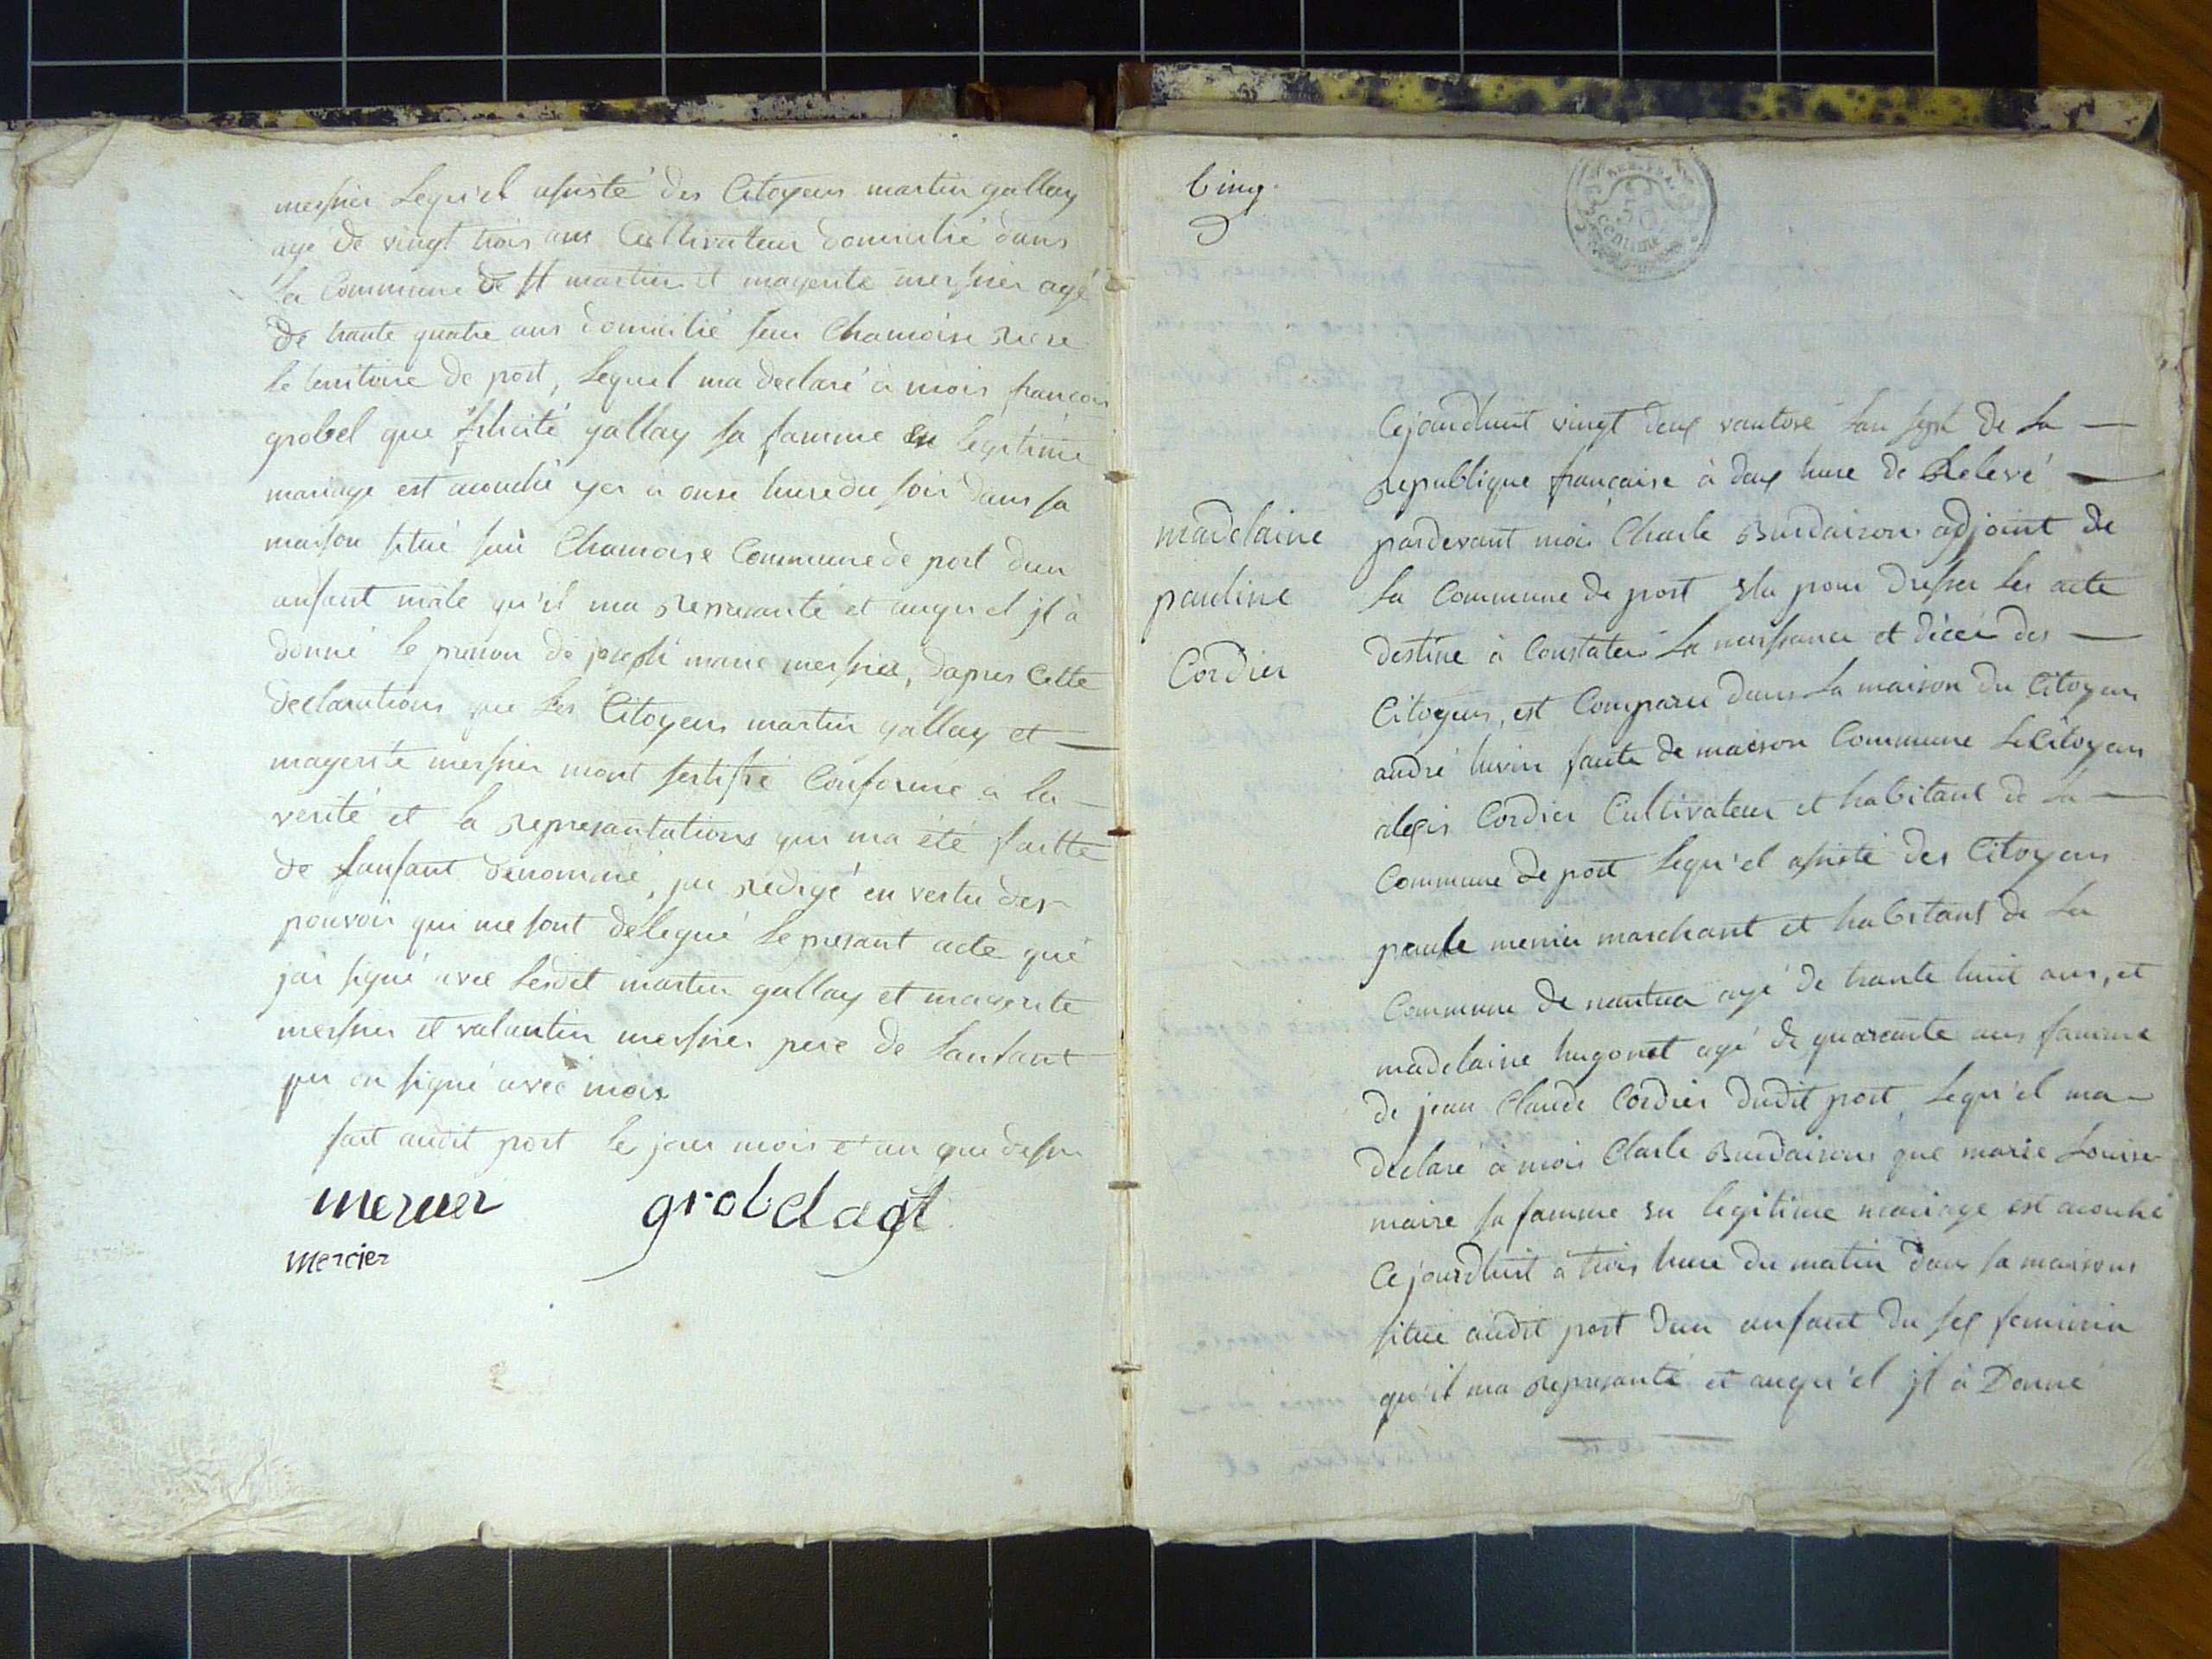 mersier Lequ'el assisté des Citoyens martin gallay
agé de vingt trois ans Cultivateur domicilié dans
la Commune de St martin et magerite mersier agé
de trante quatre ans domicilié sur Chamoise riere
le territoire de port, Lequel ma declaré à mois françois
grobel que felicité gallay sa famme en legitime
mariage est acouché yer à onse heure du soir dans sa
maison situé sur Chamoise Commune de port dun
anfant mâle qu'il ma represanté et auquel jl à
donné le prenon de joseph marie mersier, dapres Cette
declarations que les Citoyens martin gallay et
magerite mersier mont sertifié Conforme à la
verité et la represantations qui ma été faitte
de lanfant denommé, jai redigé en vertu des
pouvoir qui me sont delegué le presant acte que
jai signé avec lesdit martin gallay et magerite
mersier et valantin mersier pere de lanfant
on signé avec mois
fait audit port le jour mois et an que dessu
mercier grobel agt
mercier
Cinq.
madelaine
pauline
Cordier
Cejourdhuit vingt deux vantose lan sept de la
republique française à deux heure de Relevé
pardevant moi Charle Burdairon adjoint de
la Commune de port élu pour dresser les acte
destine à Constater la naissance et décés des
Citoyens, est Comparu dans la maison du Citoyens
andré faute de maison Commune Le Citoyens
alexis Cordier Cultivateur et habitant de la
Commune de port Lequ'el assisté des Citoyens
paule mernier marchant et habitant de la
Commune de nantua agé de trante huit ans, et
madelaine hugonet agé de quarante ans famme
de jean Claude Cordier dudit port, Lequ'el ma
declaré à mois Charle Burdairons que marie Louise
maire sa famme en legitime mariage est acouché
Cejourdhuit à trois heure du matin dans sa maisons
situé audit port dun anfant du sex feminin
qu'il ma represanté et auqu'el jl à Donné